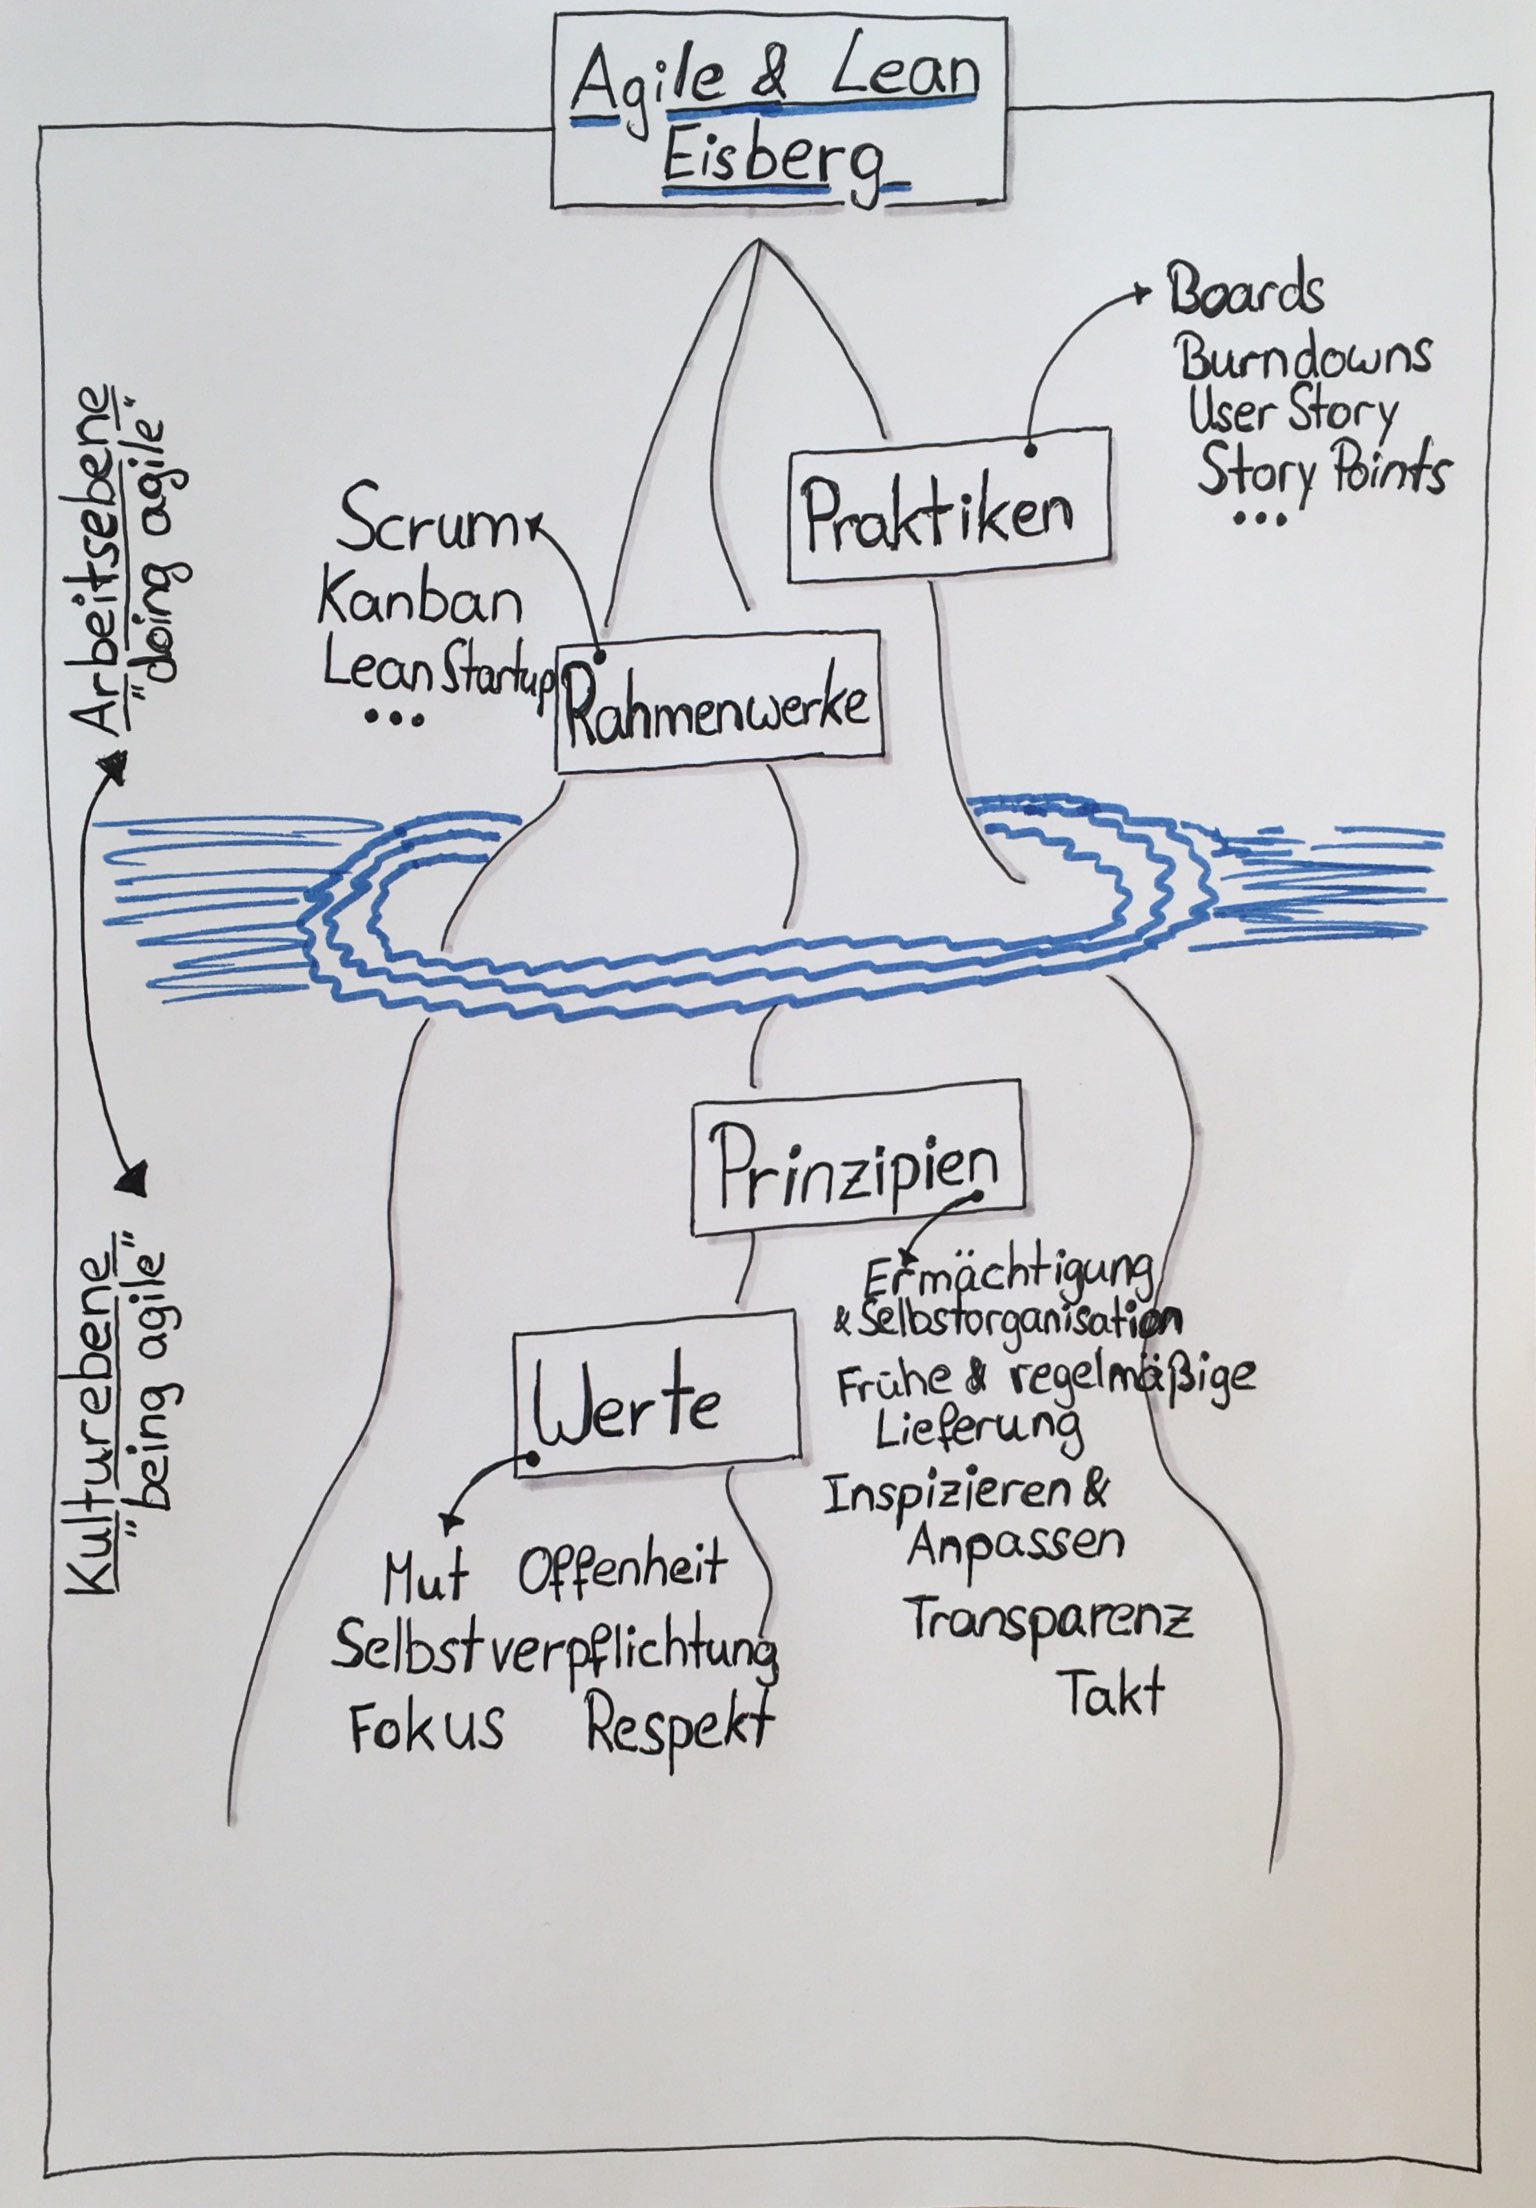 Agile & Lean
Eisberg
Boards
Burndowns
User Story
Story Points
...
Praktiken
Scrum
Kanban
Lean Startup
...
Rahmenwerke
Arbeitsebene
"doing agile"
Kulturebene
"being agile"
Prinzipien
Ermächtigung
& Selbstorganisation
Frühe & regelmäßige
Lieferung
Inspizieren &
Anpassen
Transparenz
Takt
Werte
Mut Offenheit
Selbstverpflichtung
Fokus Respekt